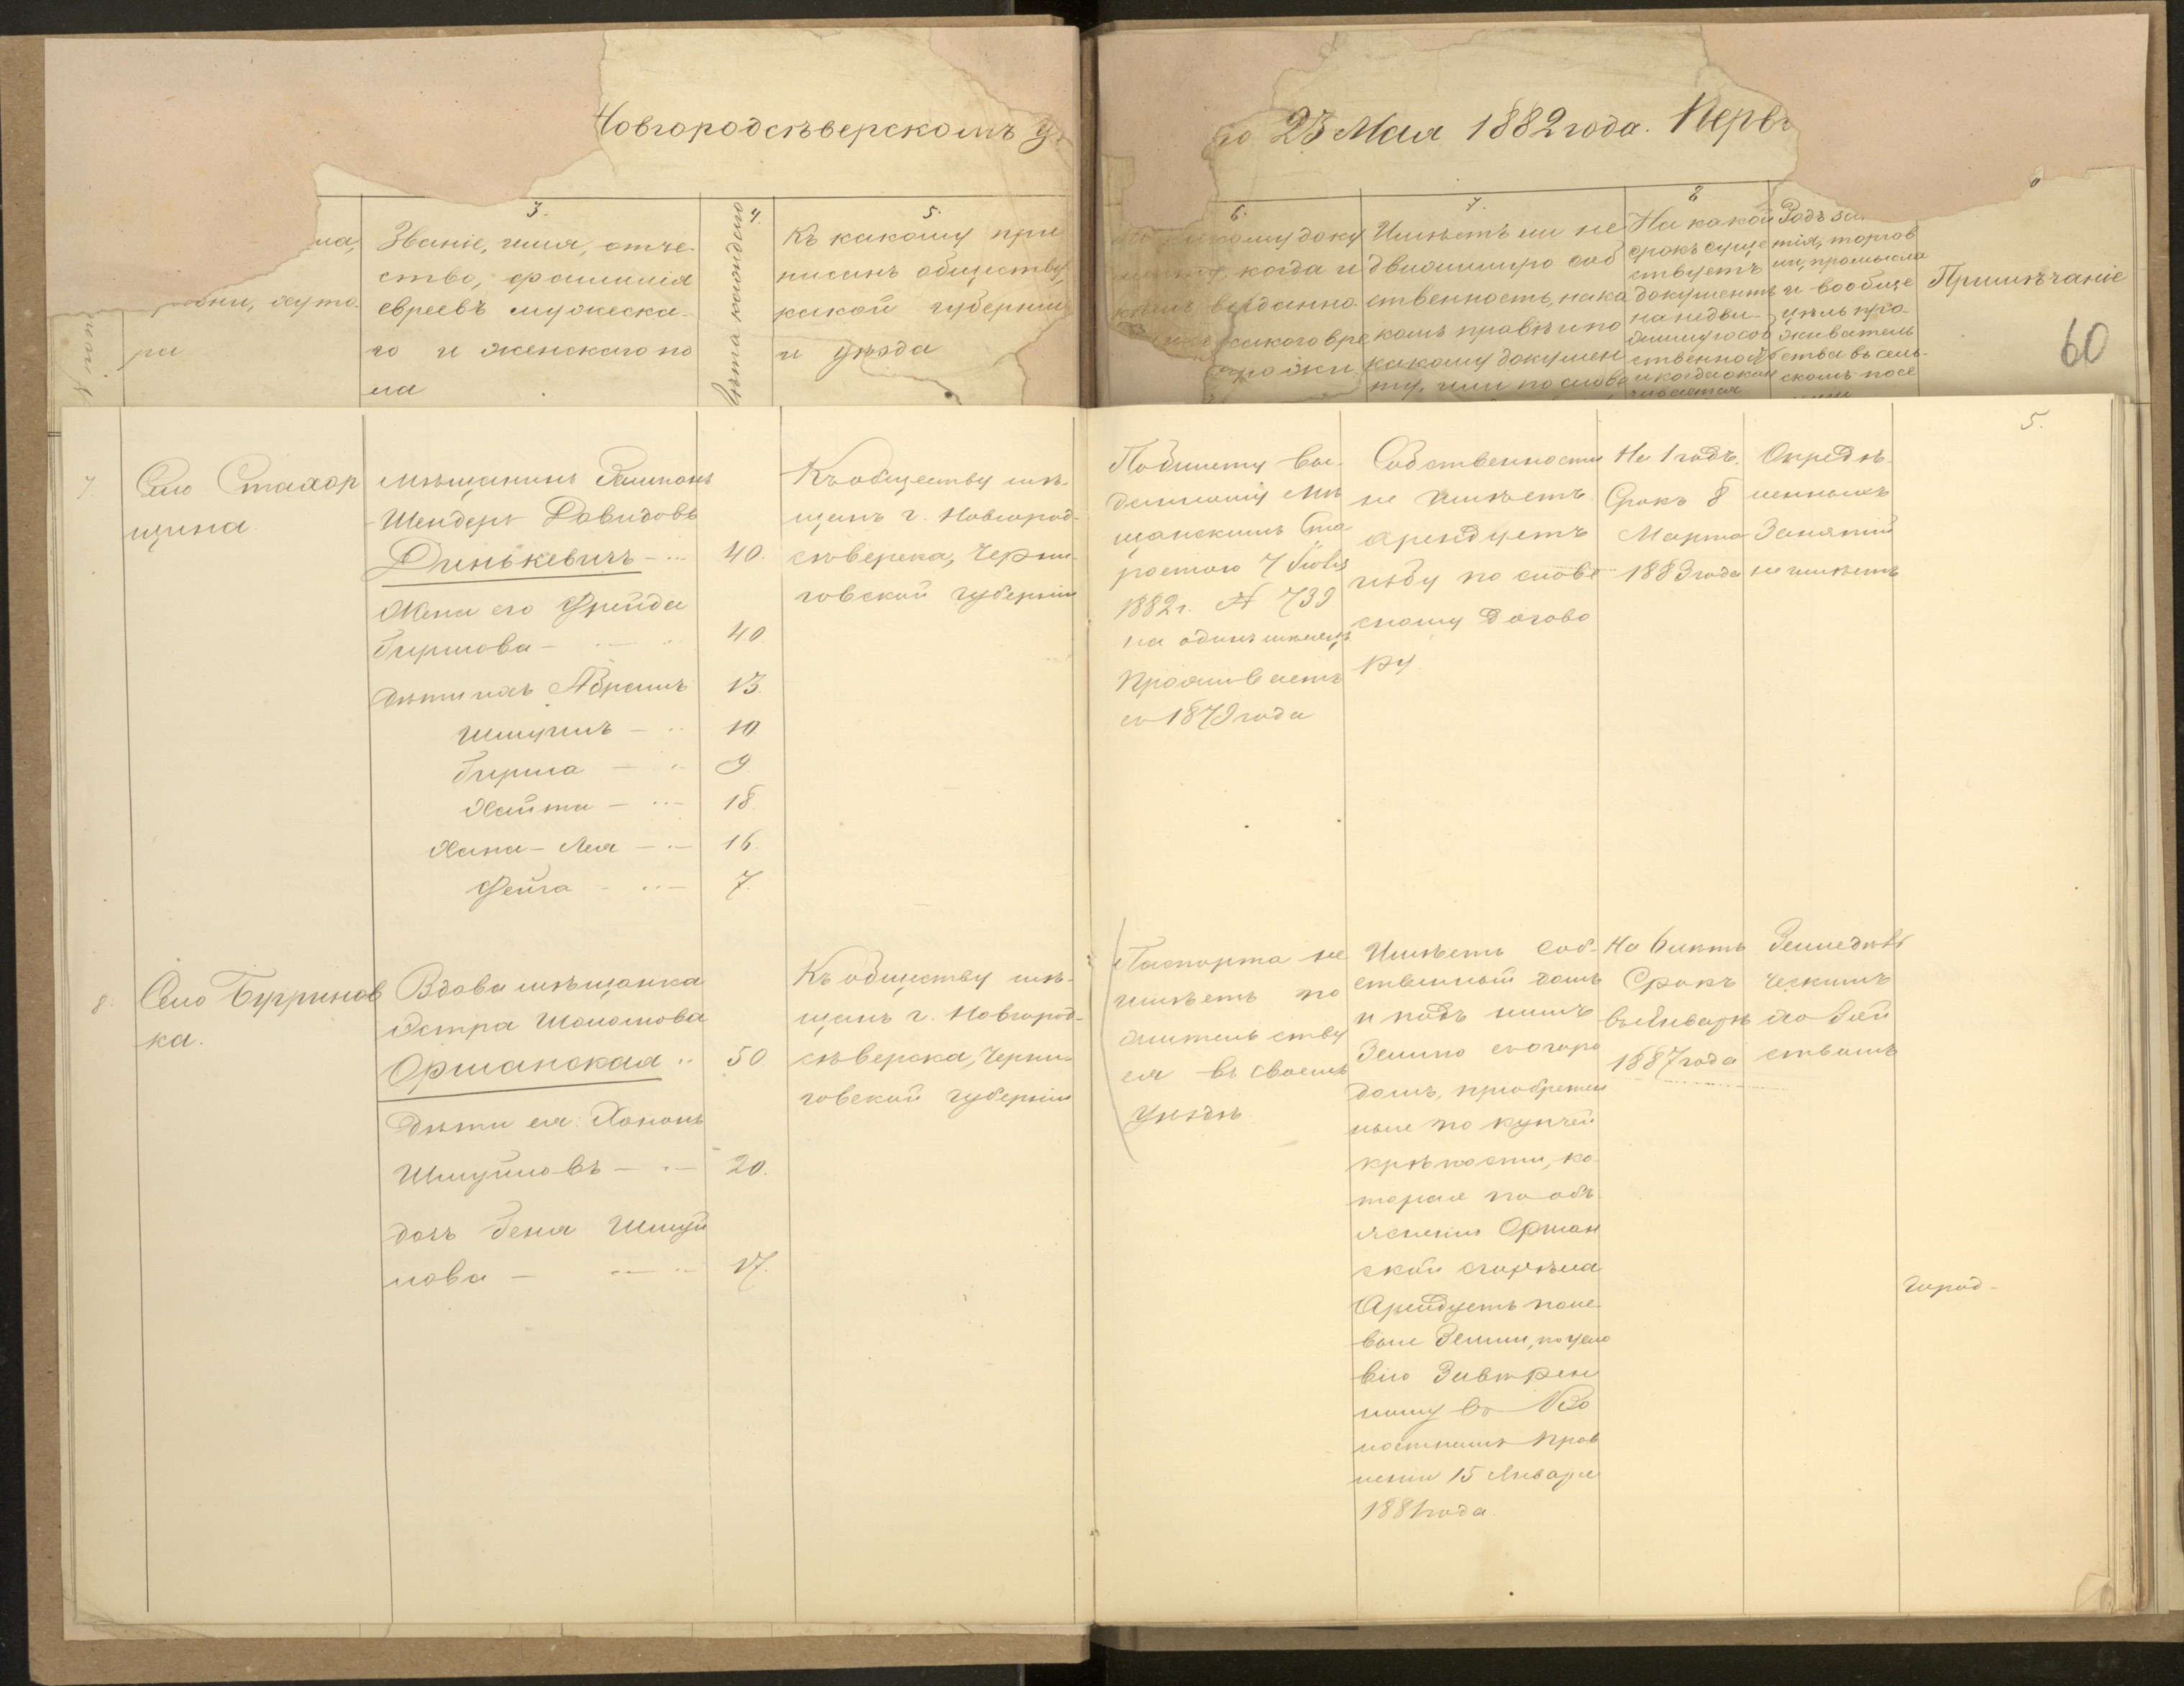 Новгородсѣверскомъ у
3.
4
5.
ла,
вни, хуто-
ра
Званіе, имя, отче-
ство, фамилія
евреевъ мужеска-
го и женскаго по
ла
Лѣта каждаго
Къ какому при
писанъ обществу,
какой губерніи
и уѣзда
го 23 Мая 1882 года. Перв
6.
7.
8
какому доку
когда и
выданно
какого вре
прожи
Имѣетъ ли не
движимую соб
ственность, на ка
комъ правѣ и по
какому докумен
ту, или по слове
На какой
срокъ суще
ствуетъ
документъ
на недви-
жимую соб
ственность
и когда окан
чивается
Родъ за
тія, торгов
ли, промысла
и вообще
цѣль про-
живатель
ства въ сель-
скомъ посе
Примѣчаніе
60
5.
7.
Село Стахор
щина
мѣщанинъ Залманъ
Шендеръ Давидовъ
Динькевичъ 40.
Жена его Фрейда
Гиршова 40.
Дѣти ихъ Абрамъ 13.
Шмуилъ 10
Гирша 9.
Хайта 18.
Хана-Лея 16.
Фейга 7.
Къ обществу мѣ-
щанъ г. Новгород-
сѣверска, Черни-
говской губерніи
По билету вы-
данному Мѣ
щанскимъ Ста
ростою 7 Іюля
1882 г. № 739
на одинъ мѣсяцъ
Проживаетъ
съ 1879 года
Собственности
не имѣетъ
арендуетъ
избу по слове
сному догово
ру
На 1 годъ.
Срокъ 8
Марта
1883 года
Опредѣ-
ленныхъ
Занятій
не имѣетъ
8.
Село Бугринов
ка.
Вдова мѣщанка
Эстра Шоломова
Оршанская 50.
Дѣти ея: Хононъ
Шмуйловъ 20.
дочь Геня Шмуй
лова 17.
Къ обществу мѣ-
щанъ г. Новгород-
сѣверска, Черни-
говской губерніи
Паспорта не
имѣетъ по
жительству
ея въ своемъ
уѣздѣ.
Имѣетъ соб-
ственный домъ
и подъ нимъ
Землю съ огоро
домъ, приобретен
ные по купчей
крѣпости, ко-
торая по объ-
ясненію Оршан
ской сгорѣла
Арендуетъ поле-
выя Земли, по усло
вію Завѣрен
ному въ Во
лостномъ Прав
леніи 15 Января
1881 года.
На 6 лѣтъ
Срокъ
въ Январѣ
1887 года
Земледѣль
ческимъ
хозяй
ствомъ
Город-